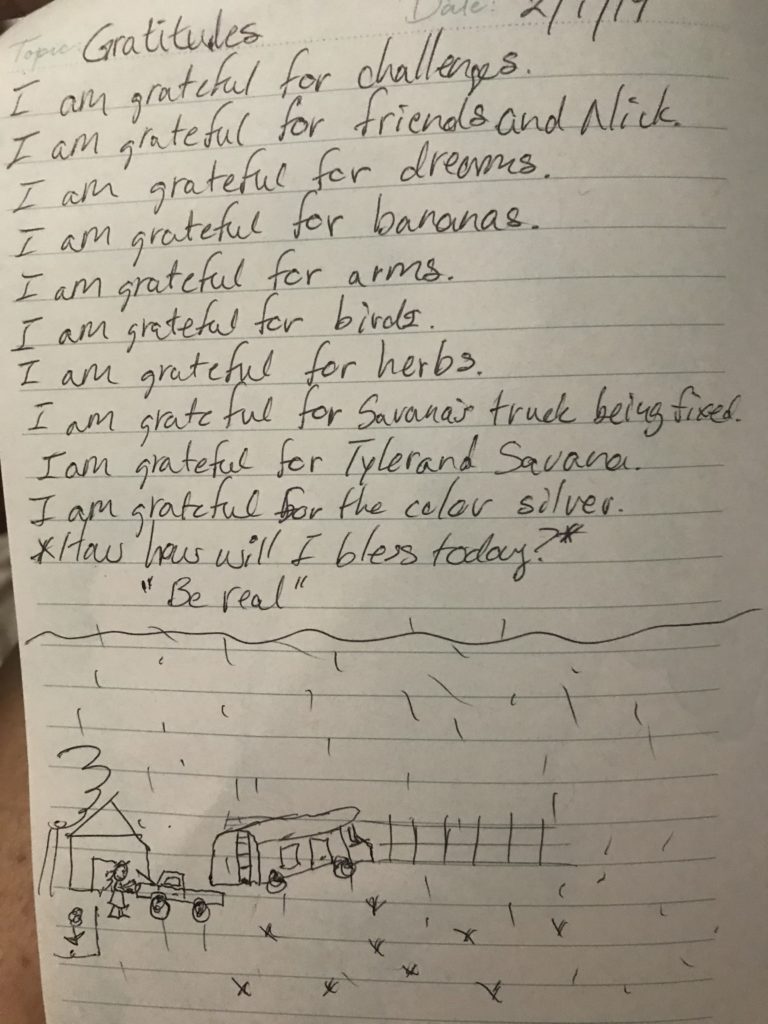 Topic: Gratitudes
Date: 2/1/19
I am grateful for challenges.
I am grateful for friends and Nick.
I am grateful for dreams.
I am grateful for bananas.
I am grateful for arms.
I am grateful for birds.
I am grateful for herbs.
I am grateful for Savana's truck being fixed.
I am grateful for Tyler and Savana.
I am grateful for the color silver.
*How will I bless today?*
"Be real"